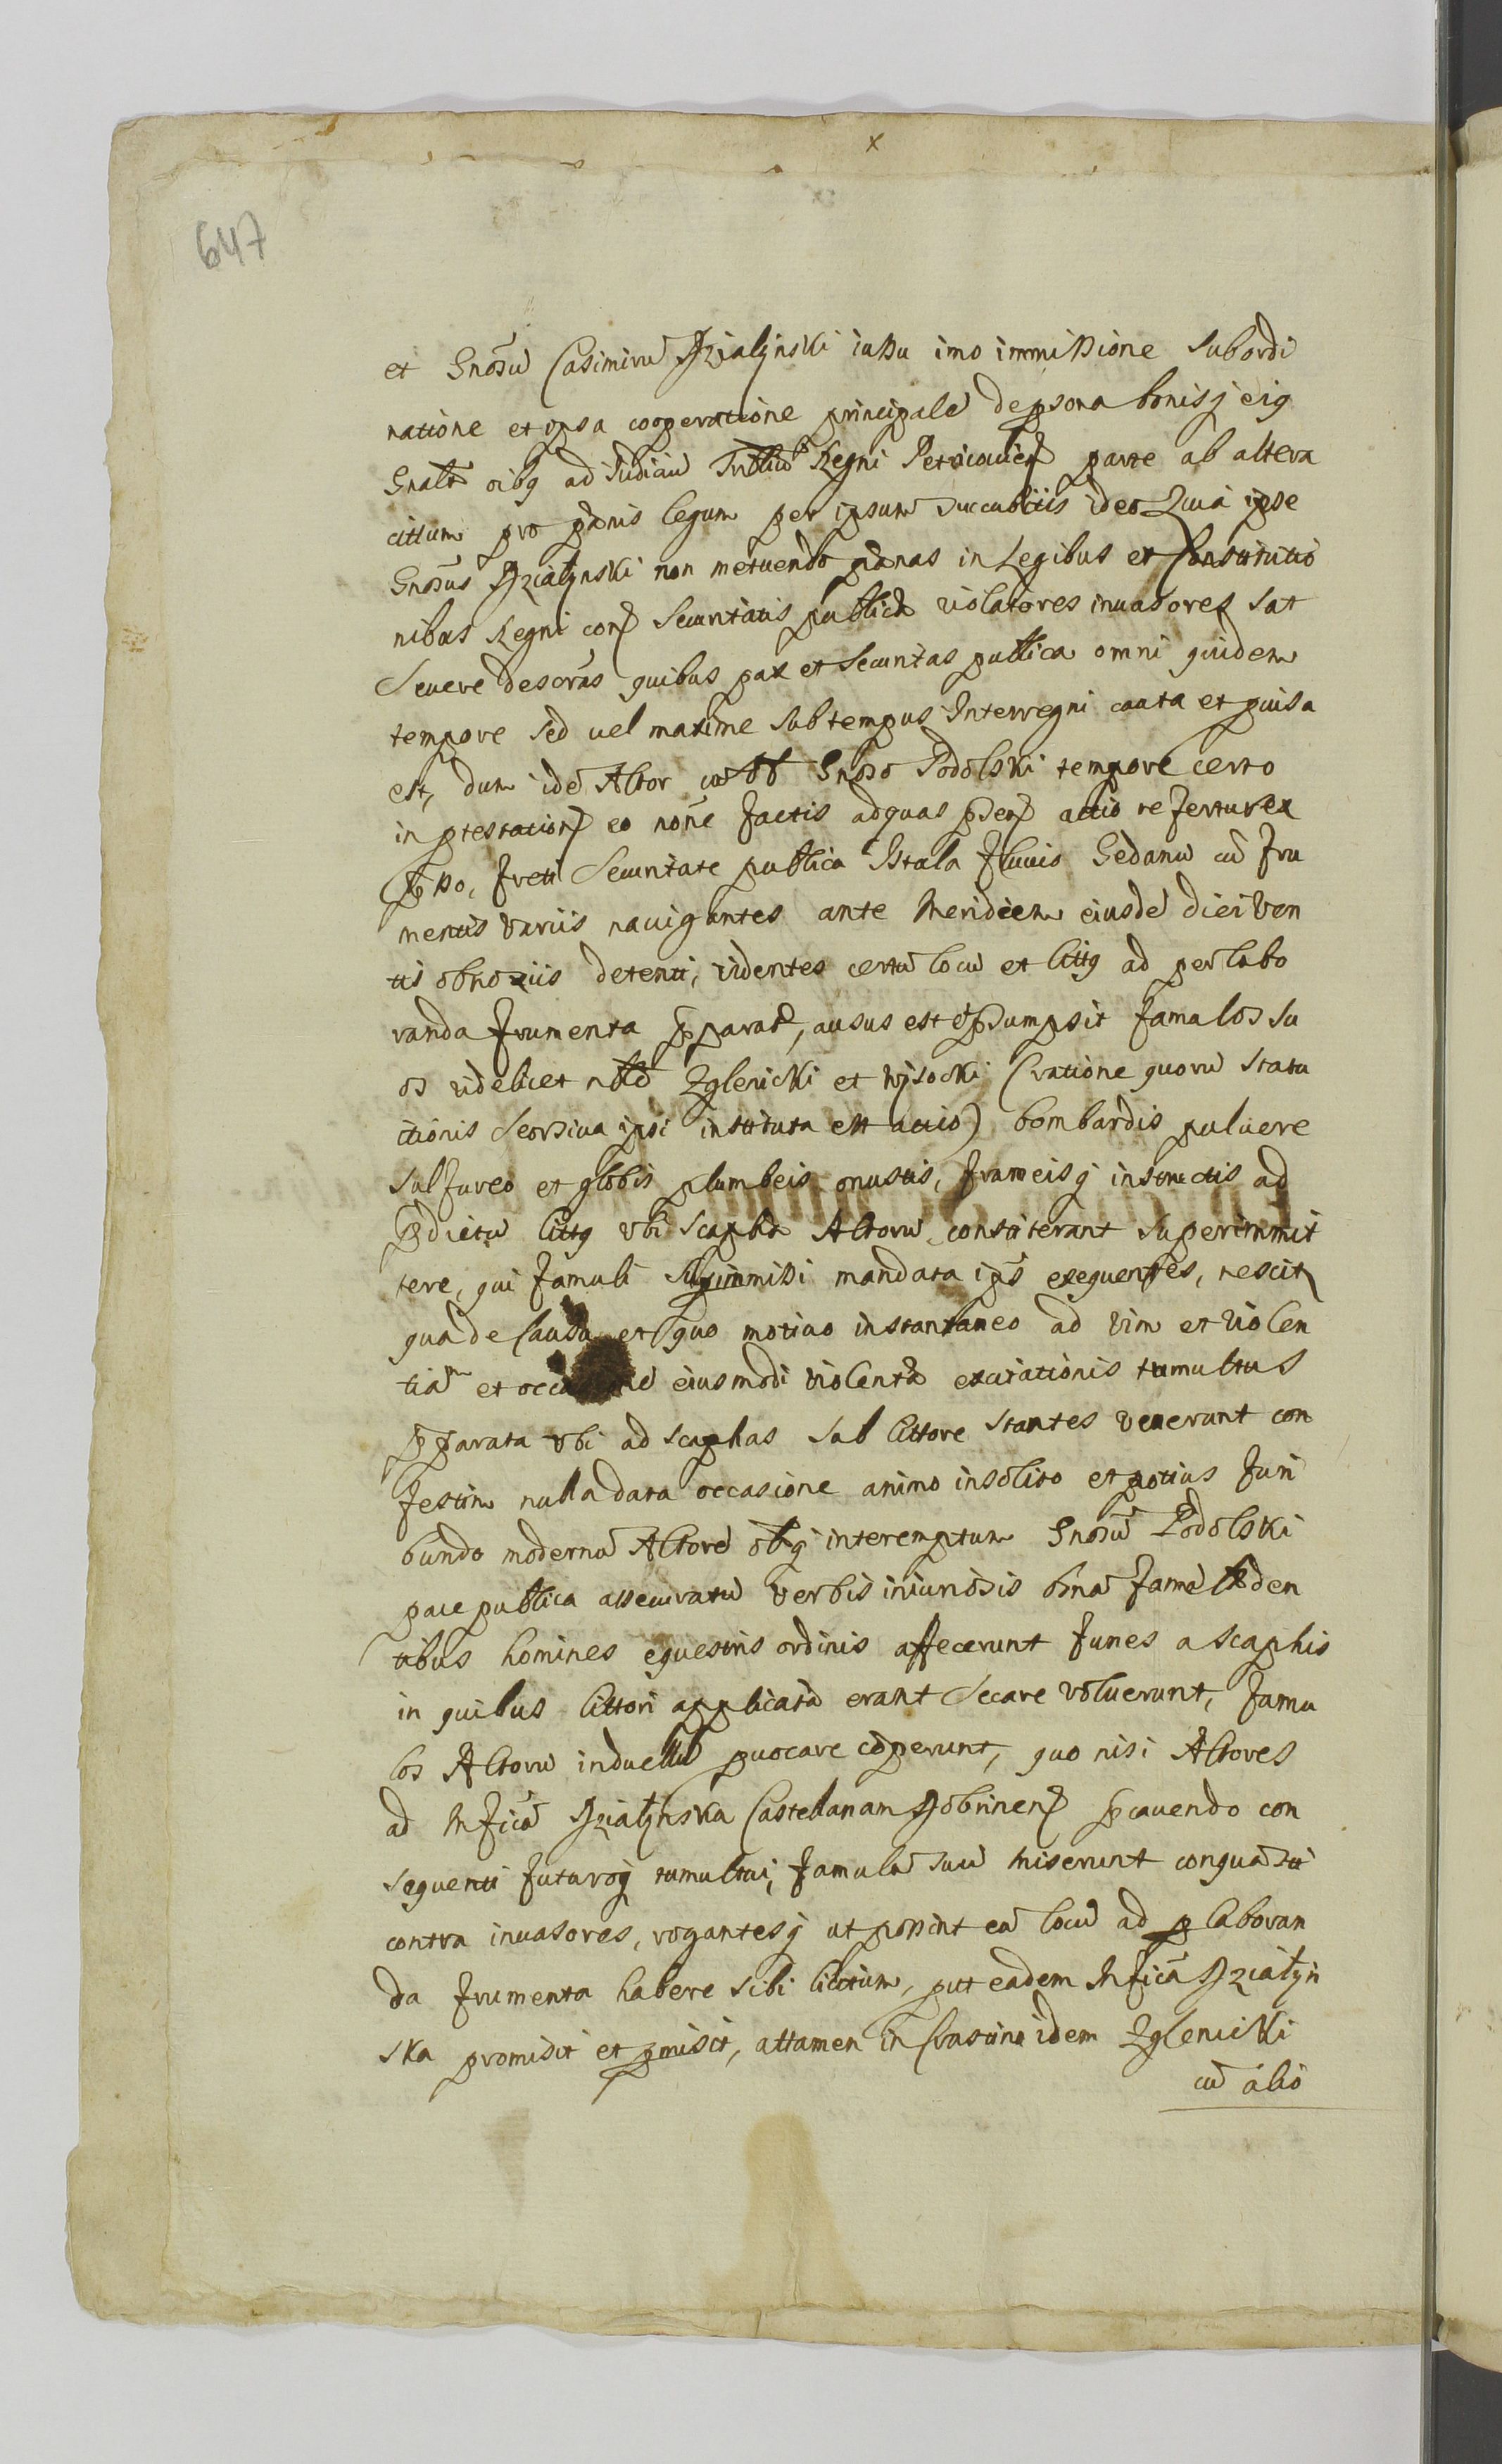 647
x
et Gnosũ Casimirũ Działynski iussu imo immissione subordi
natione et ipsa cooperatione principalẽ de psona bonisq eiq
Gnalt oibq ad Iudiciũ Regni Petricouien parte ab altera
citum pro pænis legum per ipsum succubitis ideo Quia ipse
Gnosus Działynski non metuendo pænas in Legibus et Constitutio
nibus Regni con securitatis publicæ violatores inuasores sat
seuere descrãs quibus pax et securitas publica omni quidem
tempore sed uel maxime sub tempus Interregni cauta et puisa
est, dum idẽ Actor Gnoso Podolski tempore certo
in ptestation eo noñe factis ad quas psens actio refertur ex
pso, freti securitate publica Istula fluuio Gedanũ cũ fru
mentis variis nauigantes ante Meridiem eiusdẽ diei ven
tis obnoxiis detenti, videntes certũ locũ et littq ad perlabo
randa frumenta pparat, ausus est et psumpsit famulos su
os videlicet nblẽ Zglenicki et Wysocki (ratione quorũ statu
itionis seorsiua ipsi instituta est actio) bombardis puluere
sulfureo et globis plumbeis onustis, frameisq instructis ad
pdictũ littq vbi scaphæ Actorũ constiterant superimmit
tere, qui famuli supimmissi mandata ips exequentes, nescit
qua de causa et quo motiuo instantaneo ad vim et violen
tiam et eiusmodi violentæ excitationis tumultus
pparata vbi ad scaphas sub littore stantes venerunt con
festim nulla data occasione animo insolito et potius furi
bundo modernũ Actorẽ interemptum Gnosũ Podolski
pace publica assecuratũ verbis iniuriosis bonã famã læden
tibus homines equestris ordinis affecerunt funes a scaphis
in quibus littori applicatæ erant secare voluerunt, famu
los Actorũ in duellũ puocare cœperunt, quo nisi Actores
ad Mficã Działynska Castellanam Dobrinen pcauendo con
sequenti futuroq tumultui, famulũ suũ miserunt conquæsti
contra inuasores, rogantesq ut possint eũ locũ ad plaboran
da frumenta habere sibi licitum, put eadem Mfica Działyn
ska promisit et pmisit, attamen in crastino idem Zglenicki
cũ alio